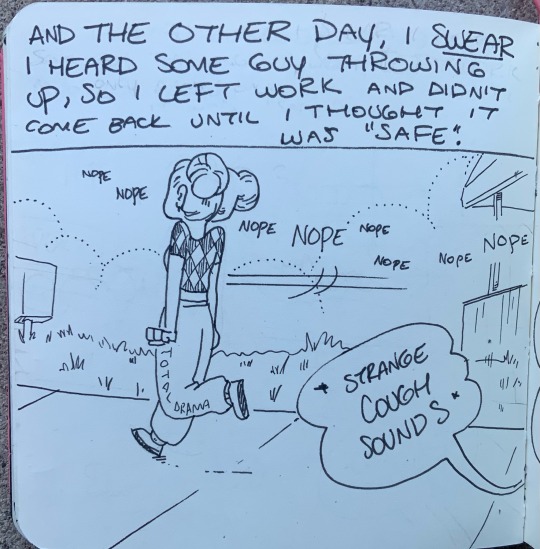 AND THE OTHER DAY, I SWEAR
I HEARD SOME GUY THROWING
UP, SO I LEFT WORK AND DIDN'T
COME BACK UNTIL I THOUGHT IT
WAS "SAFE".
NOPE
NOPE
NOPE
NOPE
NOPE
NOPE
NOPE
NOPE
TOTAL
DRAMA
* STRANGE
COUGH
SOUNDS *